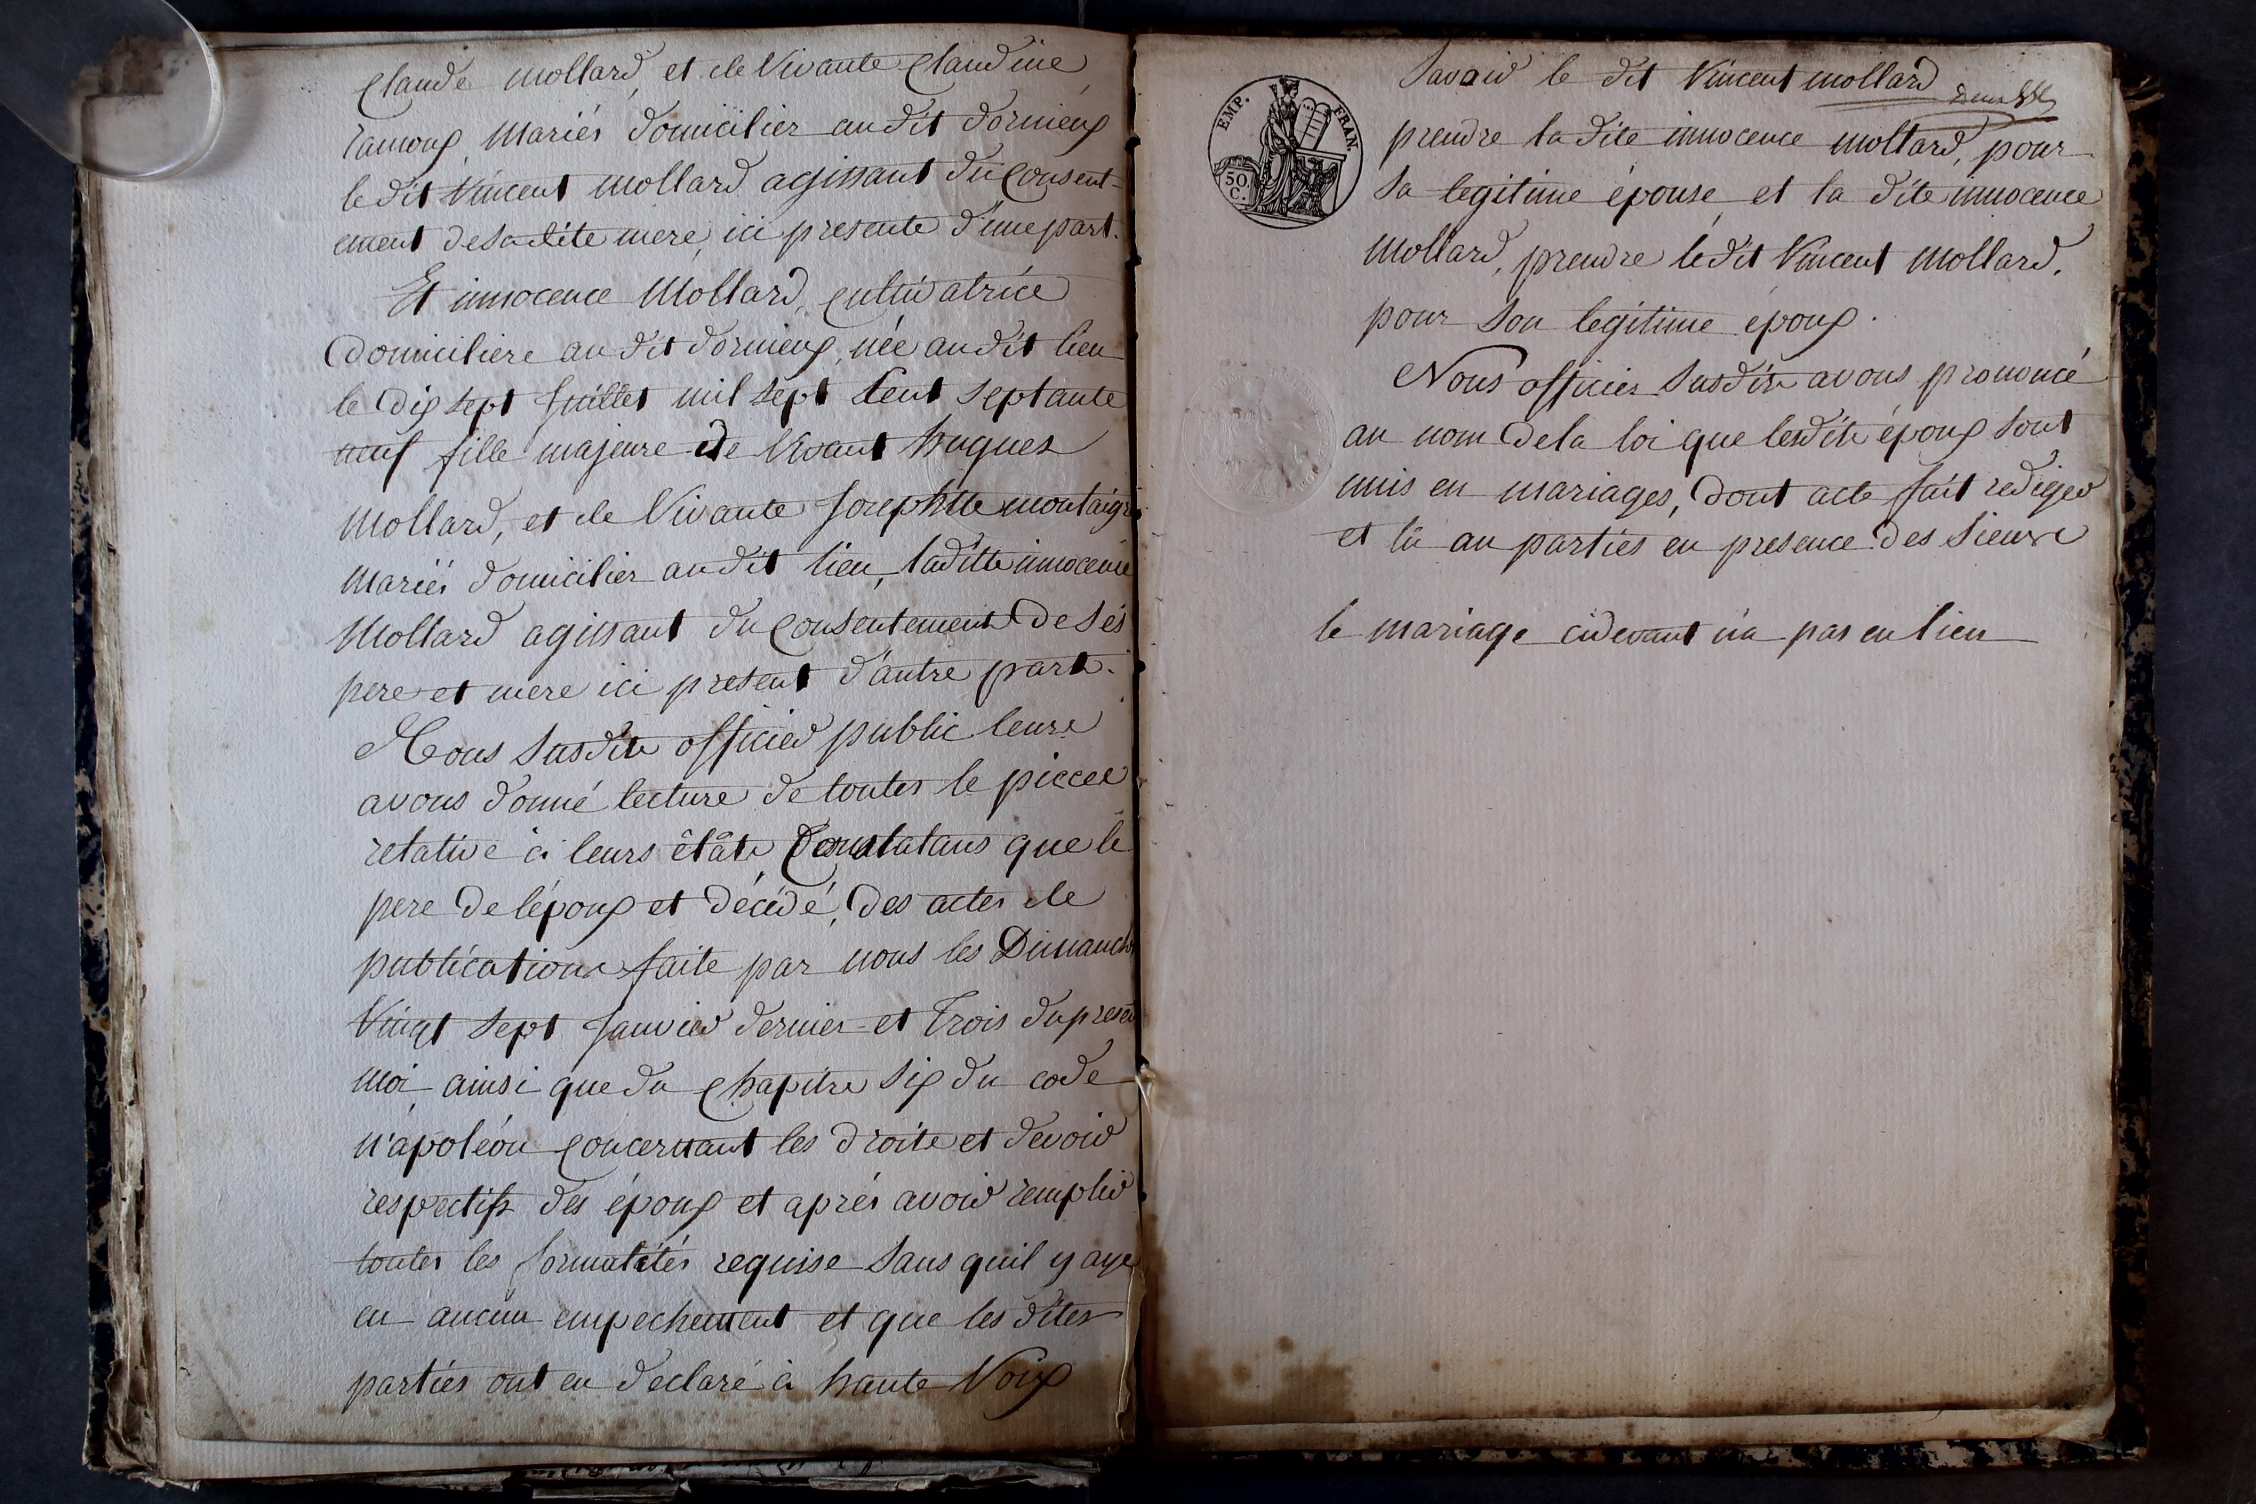 Claude mollard, et de Vivante Claudine
ramoux, Mariés domicilier au dit dormieux
le dit Vincent mollard agissant du Consent-
ement de sa dite mere, ici presente d'une part.
Et innocence Mollard, cultivatrice
domiciliere au dit dormieux, née au dit lieu
le dix sept Juillet mil sept Cent septante
neuf fille majeure de Vivant hugues
Mollard, et de Vivante Josephtte
Mariés domicilier au dit lieu, laditte innocence
Mollard agissant du Consentement De Sés
pere et mere ici present d'autre part.
Nous Susdit officier public leurs
avons donné lecture de toutes le pieces
relative à leurs êtâts Constatans que le
pere De l'époux et décédé, Des actes de
publications faite par nous les Dimanche
Vingt Sept Janvier dernier et Trois du present
Moi ainsi que du Chapitre Six du code
n'apoléon Concernant les droits et devoir
respectifs des époux et aprés avoir remplir
toutes les formalités requise Sans quil y aye
eu aucun empechement et que les dites
parties ont eu declaré à haute Voix
EMP. FRAN.
50.
C.
Savoir le dit Vincent mollard
prendre la dite innocence mollard, pour
Sa legitime épouse, et la dite innocence
Mollard, prendre le dit Vincent Mollard,
pour Son legitime époux.
Nous officier Susdit avons prononcé
au nom De la loi que lesdits époux Sont
unis en mariages, Dont acte fait rediger
et lû au parties en presence des Sieurs
le mariage cidevant n'a pas eu lieu